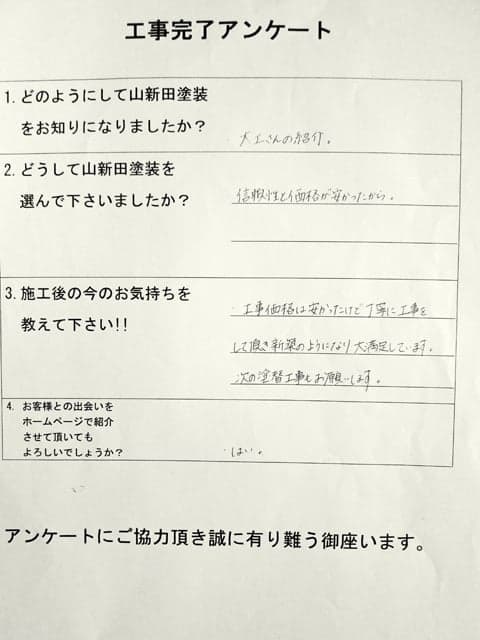 工事完了アンケート
1. どのようにして山新田塗装
をお知りになりましたか？
大工さんの紹介。
2. どうして山新田塗装を
選んで下さいましたか？
信頼性と価格が安かったから。
3. 施工後の今のお気持ちを
教えて下さい!!
工事価格は安かったけど丁寧に工事を
して頂き新築のようになり大満足しています。
次の塗替工事もお願いします。
4. お客様との出会いを
ホームページで紹介
させて頂いても
よろしいでしょうか？
はい。
アンケートにご協力頂き誠に有り難う御座います。